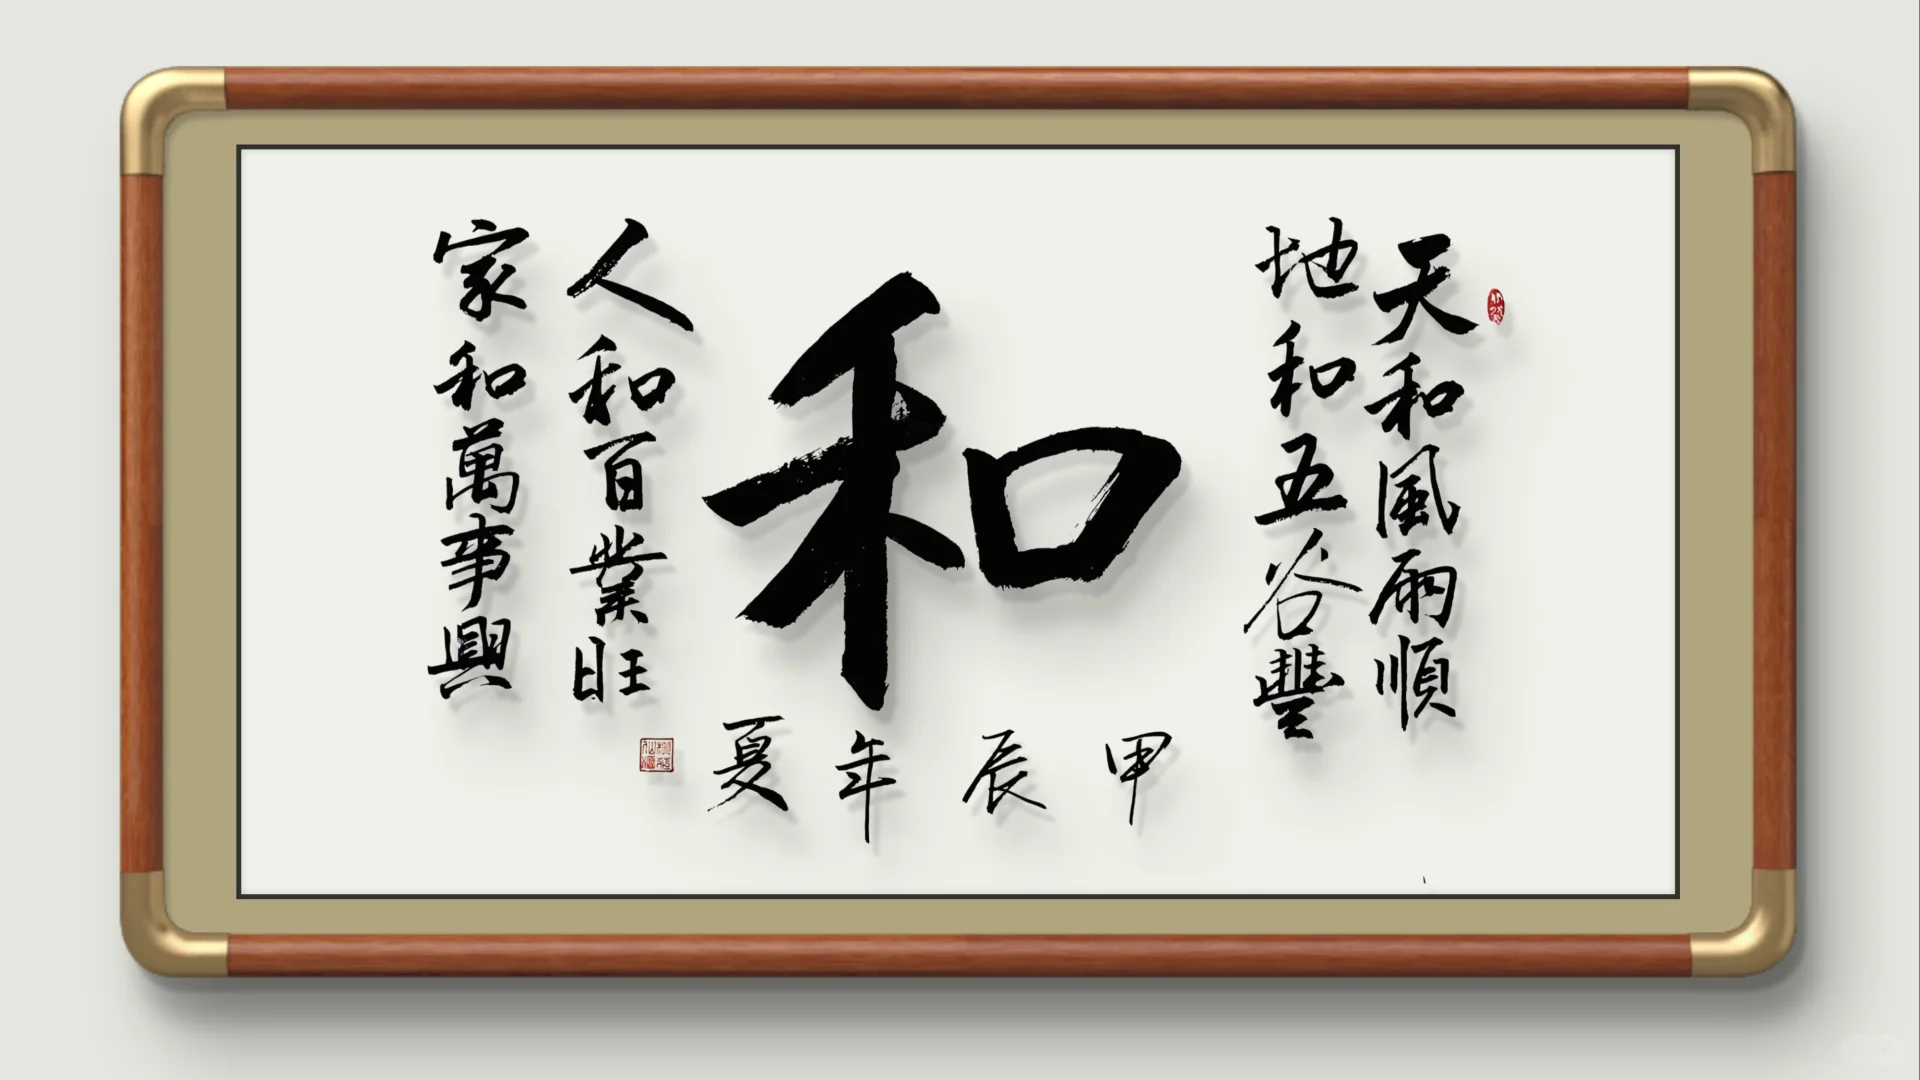 天和風雨順
地和五谷豐
和
人和百業旺
家和萬事興
甲辰年夏